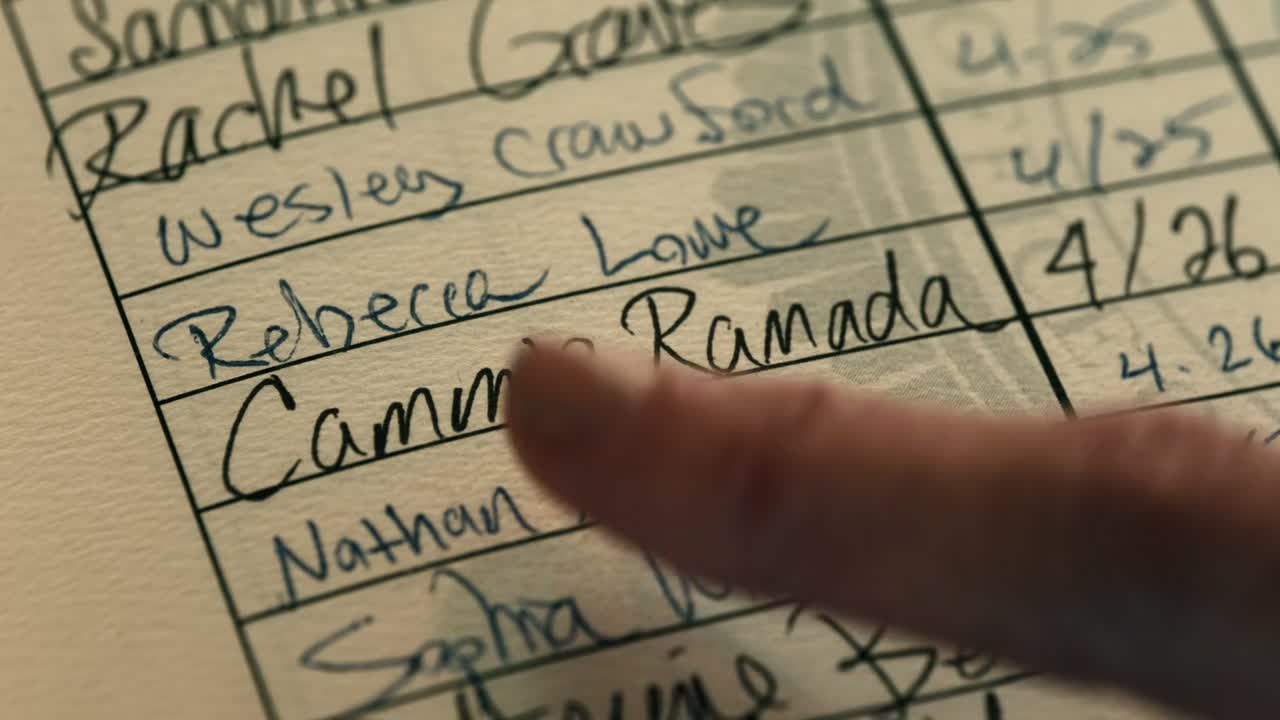 Rachel Graves 4-25
Wesley Crawford 4/25
Rebecca Lowe 4/26
Cammie Ramada 4.26
Nathan
Sophia